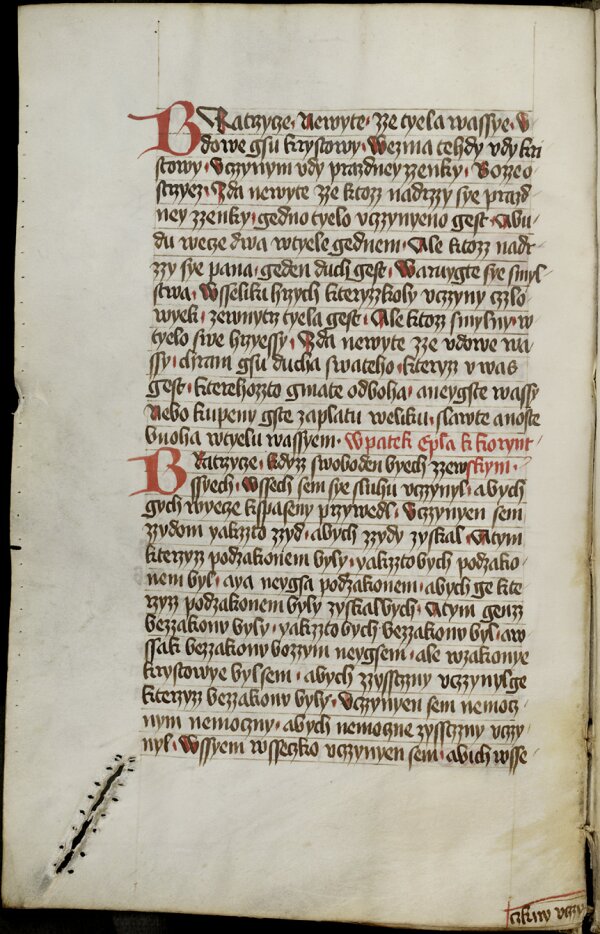 BRatrzycze· Newyte· zze tyela wassye· v
dowe gsu krystowy· Wezma tehdy vdy kri
stowy· Vczynym vdy prazdney zzenky· Bozzeo
strzyez· Zda newyte zze ktozz nadrzzy sye prazd
ney zzenky· gedno tyelo vczynyeno gest· Abu
du wecze dwa wtyele gednem· Ale ktozz nadr
zzy sye pana· geden duch gest· Waruygte sye smyl
stwa· Wsseliku hrzych kteryzkoly vczyny czlo
wyek· zewnytrz tyela gest· Ale ktozz smylny w
tyelo swe hrzyessy· Zda newyte zze vdowe wa
ssy· chram gsu ducha swateho· kteryz v was
gest· kterehozzto gmate odboha· aneygste wassy
Nebo kupeny gste zaplatu weliku· slawte anoste
buoha wtyelu wassyem· Wpatek Epla k korynt
BRatrzycze· kdyzz swoboden bych zzewskym·
ssyech· Wssech sem sye sluhu vczynyl· abych
gych wyecze kspaseny przywedl· Vczynyen sem
zzydom yakzzto zzyd· abych zzydy zyskal· Atym
kterzyz podzakonem byly· yakzzto bych podzako
nem byl· aya neygsa podzakonem· abych ge kte
rzyz podzakonem byly zyskalbych· Atym genzz
bezzakonv byly· yakzzto bych bezzakonv byl· aw
ssak bezzakonv bozzym neygsem· ale wzakonye
krystowye byl sem· abych zzysstzny vczynylge
kterzyz bezzakonv byly· Vczynyen sem nemocz
nym nemoczny· abych nemoczne zysstzny vczy
nyl· Wssyem wsseczko vczynyen sem· abich wsse
czkny vczy